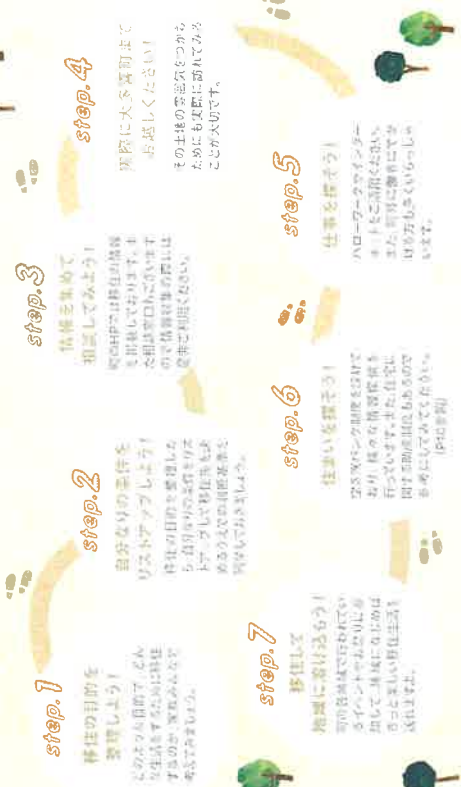 step.1
移住の目的を
整理しよう!
どのような目的で、どん
な生活をするために移住
するのか、家族みんなで
考えてみましょう。
step.2
自分なりの条件を
リストアップしよう!
移住の目的を整理した
ら、自分なりの条件をリス
トアップして移住先を決
めるうえでの
step.3
情報を集めて
相談してみよう!
町のHPでは移住の情報
を掲載しております。ま
た相談窓口もございます
ので情報収集の際には
是非ご利用ください。
step.4
実際に大多喜町まで
お越しください!
その土地の雰囲気をつかむ
ためにも実際に訪れてみる
ことが大切です。
step.5
仕事を探そう!
ハローワークやインター
ネットをご活用ください。
step.6
住まいを探そう!
空き家バンク制度を設けて
おり、様々な情報提供を
行っています。また住宅に
関する助成制度もあるので
参考にしてみてください。
step.7
移住して
地域に溶け込もう!
町の各地域で行われてい
るイベントやお祭りに参
加して、地域になじめば、
もっと楽しい移住生活を
送れますよ。